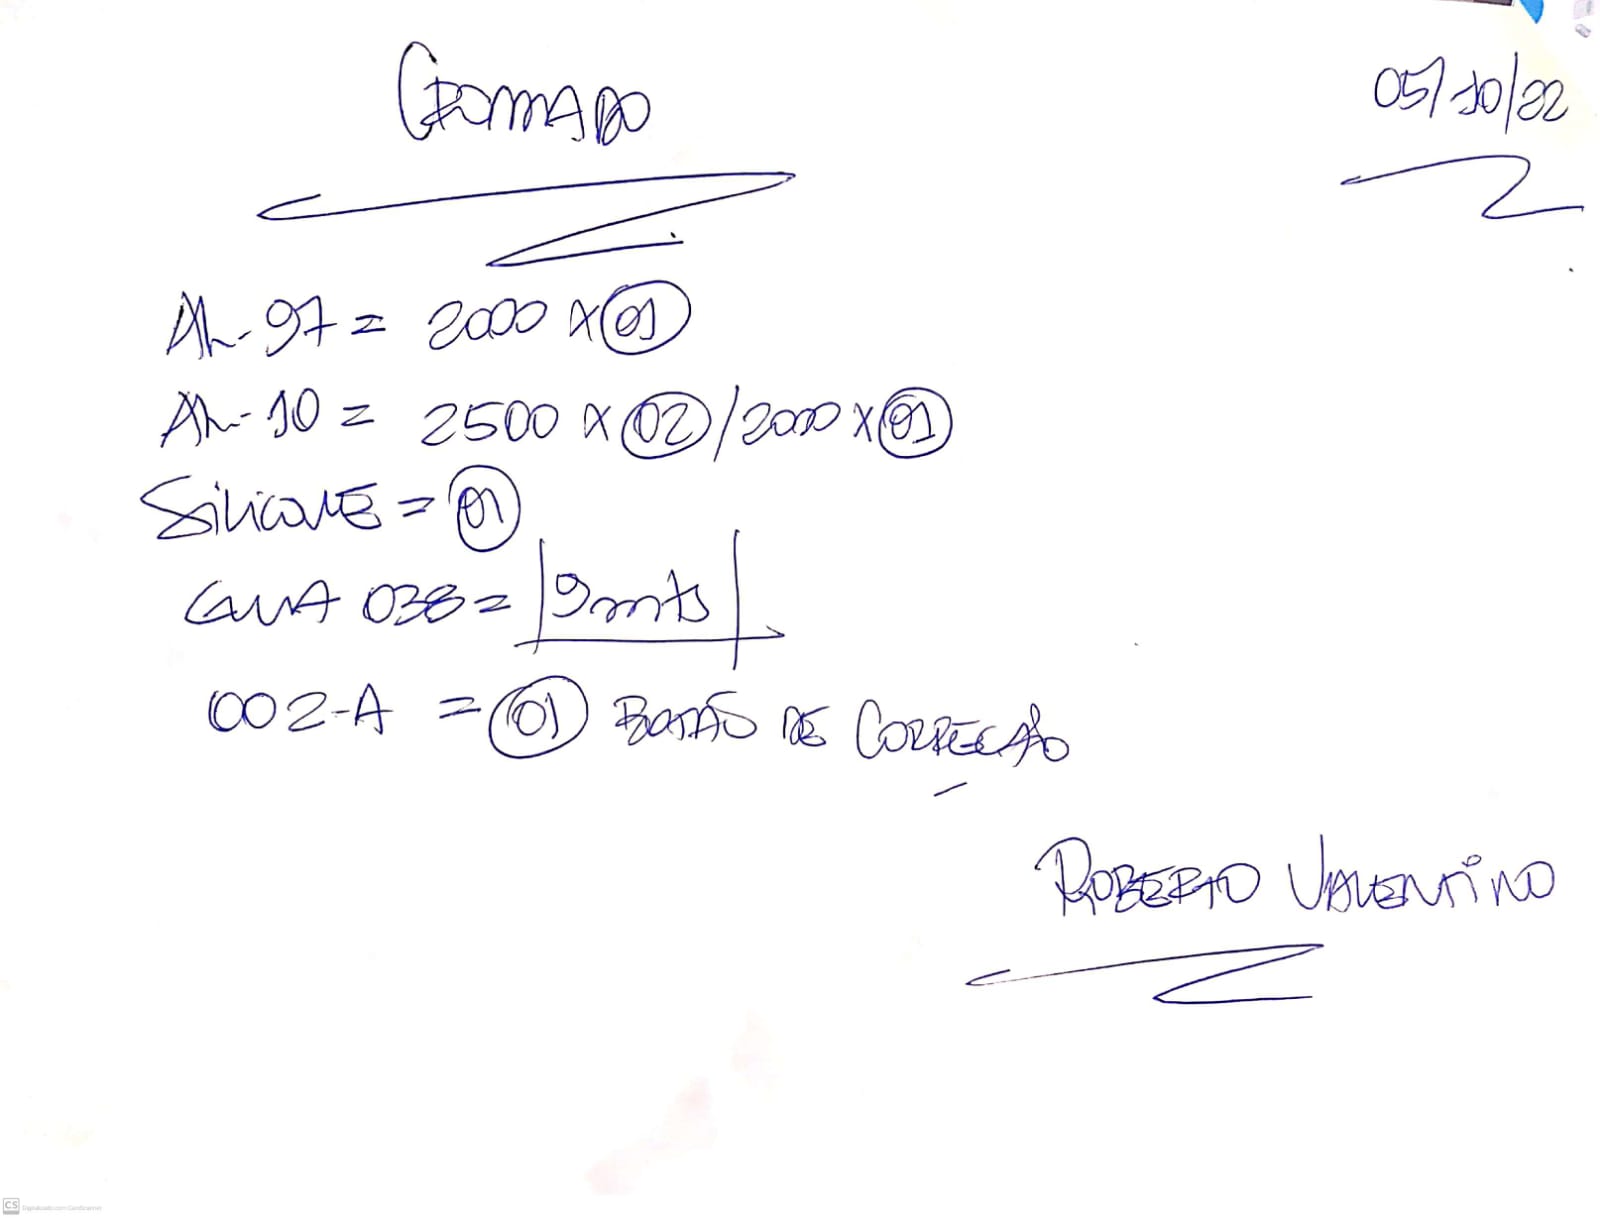 CROMADO
05/10/22
AL-97 = 2000 X 01
AL-10 = 2500 X 02 / 2000 X 01
SILICONE = 01
038 = 9mts
002-A = 01 BOTÃO DE CORREÇÃO
ROBERTO VALENTINO
CS Digitalizado com CamScanner